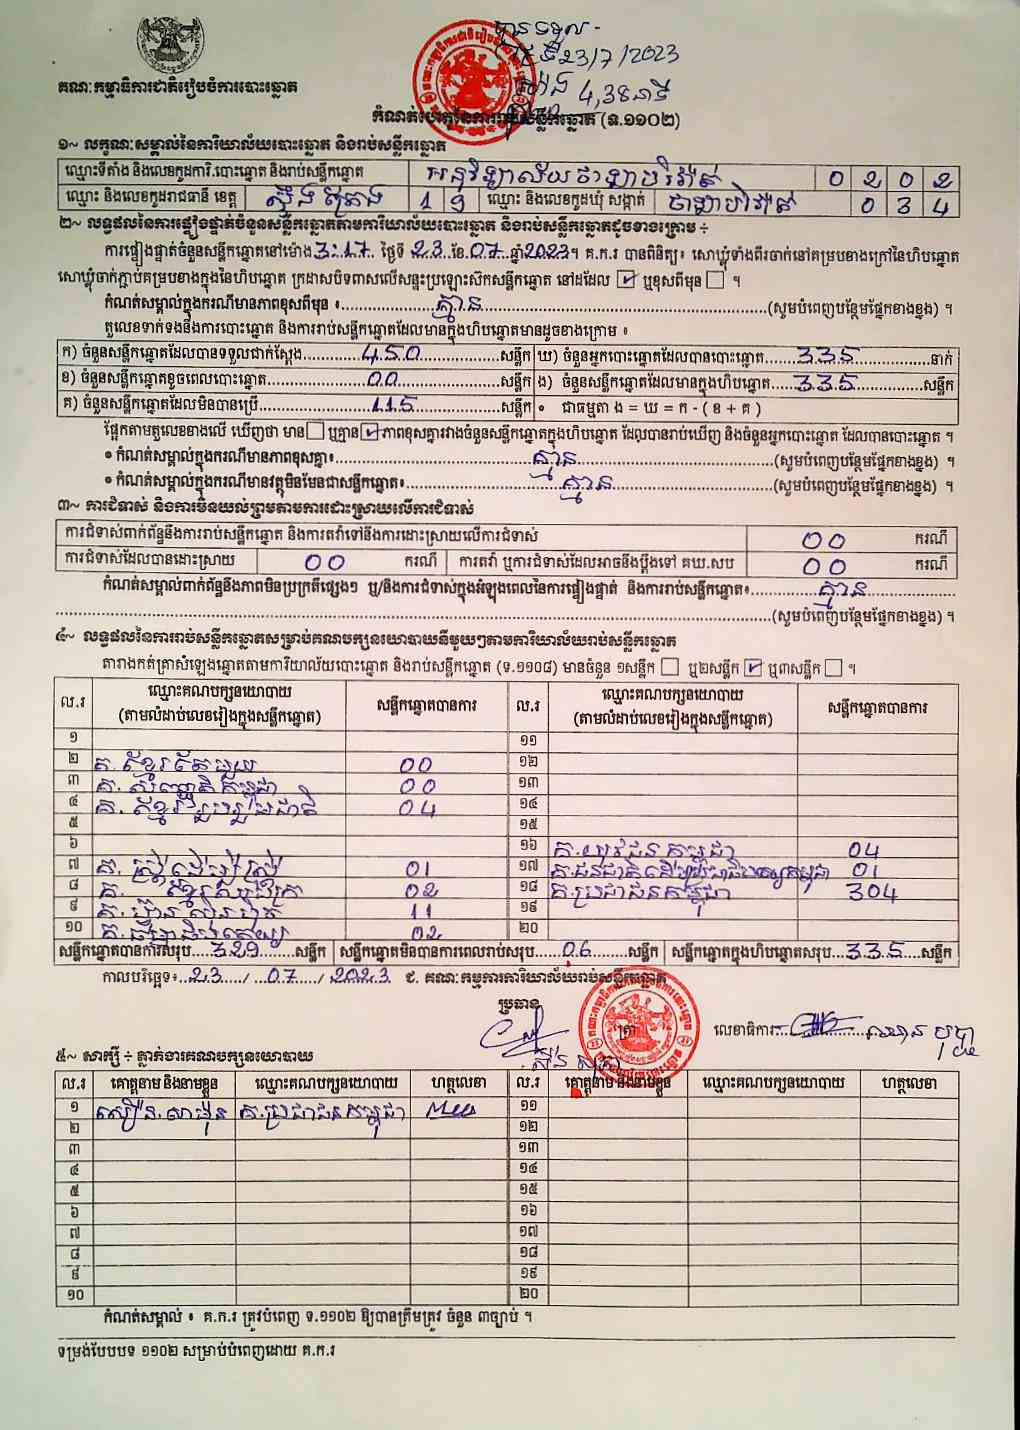 បានទទួល-
ថ្ងៃទី23/7/2023
ម៉ោង 4,38នាទី
គណៈកម្មាធិការជាតិរៀបចំការបោះឆ្នោត
កំណត់ហេតុនៃការរាប់សន្លឹកឆ្នោត (ទ.១១០២)
១~ លក្ខណៈសម្គាល់នៃការិយាល័យបោះឆ្នោត និងរាប់សន្លឹកឆ្នោត
ឈ្មោះទីតាំង និងលេខកូដការិ.បោះឆ្នោត និងរាប់សន្លឹកឆ្នោត អនុវិទ្យាល័យថាឡាបរិវ៉ាត់ 0 2 0 2
ឈ្មោះ និងលេខកូដរាជធានី ខេត្ត ស្ទឹងត្រែង 1 9 ឈ្មោះ និងលេខកូដឃុំ សង្កាត់ ថាឡាបរិវ៉ាត់ 0 3 4
២~ លទ្ធផលនៃការផ្ទៀងផ្ទាត់ចំនួនសន្លឹកឆ្នោតតាមការិយាល័យបោះឆ្នោត និងរាប់សន្លឹកឆ្នោតដូចខាងក្រោម ÷
ការផ្ទៀងផ្ទាត់ចំនួនសន្លឹកឆ្នោតនៅម៉ោង 3:17 ថ្ងៃទី 23 ខែ 07 ឆ្នាំ 2023។ គ.ក.រ បានពិនិត្យ៖ សោឃ្លុំទាំងពីរចាក់នៅគម្របខាងក្រៅនៃហិបឆ្នោត
សោឃ្លុំចាក់ភ្ជាប់គម្របខាងក្នុងនៃហិបឆ្នោត ក្រដាសបិទពាសលើសន្ទះប្រឡោះស៊កសន្លឹកឆ្នោត នៅដដែល ☑ ឬខុសពីមុន ☐ ។
កំណត់សម្គាល់ក្នុងករណីមានភាពខុសពីមុន ៖ គ្មាន (សូមបំពេញបន្ថែមផ្នែកខាងខ្នង) ។
តួលេខទាក់ទងនឹងការបោះឆ្នោត និងការរាប់សន្លឹកឆ្នោតដែលមានក្នុងហិបឆ្នោតមានដូចខាងក្រោម ៖
ក) ចំនួនសន្លឹកឆ្នោតដែលបានទទួលជាក់ស្តែង 450 សន្លឹក ឃ) ចំនួនអ្នកបោះឆ្នោតដែលបានបោះឆ្នោត 335 នាក់
ខ) ចំនួនសន្លឹកឆ្នោតខូចពេលបោះឆ្នោត 00 សន្លឹក ង) ចំនួនសន្លឹកឆ្នោតដែលមានក្នុងហិបឆ្នោត 335 សន្លឹក
គ) ចំនួនសន្លឹកឆ្នោតដែលមិនបានប្រើ 115 សន្លឹក • ជាធម្មតា ង = ឃ = ក - ( ខ + គ )
ផ្អែកតាមតួលេខខាងលើ ឃើញថា មាន ☐ ឬគ្មាន ☑ ភាពខុសគ្នារវាងចំនួនសន្លឹកឆ្នោតក្នុងហិបឆ្នោត ដែលបានរាប់ឃើញ និងចំនួនអ្នកបោះឆ្នោត ដែលបានបោះឆ្នោត ។
• កំណត់សម្គាល់ក្នុងករណីមានភាពខុសគ្នា៖ គ្មាន (សូមបំពេញបន្ថែមផ្នែកខាងខ្នង) ។
• កំណត់សម្គាល់ក្នុងករណីមានវត្ថុមិនមែនជាសន្លឹកឆ្នោត៖ គ្មាន (សូមបំពេញបន្ថែមផ្នែកខាងខ្នង) ។
៣~ ការជំទាស់ និងការមិនយល់ព្រមតាមការដោះស្រាយលើការជំទាស់
ការជំទាស់ពាក់ព័ន្ធនឹងការរាប់សន្លឹកឆ្នោត និងការតវ៉ាទៅនឹងការដោះស្រាយលើការជំទាស់ 00 ករណី
ការជំទាស់ដែលបានដោះស្រាយ 00 ករណី ការតវ៉ា ឬការជំទាស់ដែលអាចនឹងប្តឹងទៅ គឃ.សប 00 ករណី
កំណត់សម្គាល់ពាក់ព័ន្ធនឹងភាពមិនប្រក្រតីផ្សេងៗ ឬ/និងការជំទាស់ក្នុងអំឡុងពេលនៃការផ្ទៀងផ្ទាត់ និងការរាប់សន្លឹកឆ្នោត៖ គ្មាន
(សូមបំពេញបន្ថែមផ្នែកខាងខ្នង) ។
៤~ លទ្ធផលនៃការរាប់សន្លឹកឆ្នោតសម្រាប់គណបក្សនយោបាយនីមួយៗតាមការិយាល័យរាប់សន្លឹកឆ្នោត
តារាងកត់ត្រាសំឡេងឆ្នោតតាមការិយាល័យបោះឆ្នោត និងរាប់សន្លឹកឆ្នោត (ទ.១១០៨) មានចំនួន ១សន្លឹក ☐ ឬ២សន្លឹក ☑ ឬ៣សន្លឹក ☐ ។
ល.រ ឈ្មោះគណបក្សនយោបាយ (តាមលំដាប់លេខរៀងក្នុងសន្លឹកឆ្នោត) សន្លឹកឆ្នោតបានការ ល.រ ឈ្មោះគណបក្សនយោបាយ (តាមលំដាប់លេខរៀងក្នុងសន្លឹកឆ្នោត) សន្លឹកឆ្នោតបានការ
១ ១១
២ គ.ខ្មែរតែមួយ 00 ១២
៣ គ.សញ្ជាតិកម្ពុជា 00 ១៣
៤ គ.ខ្មែររួបរួមជាតិ 04 ១៤
៥ ១៥
៦ ១៦ គ.យុវជនកម្ពុជា 04
៧ គ.ស្ត្រីដើម្បីស្ត្រី 01 ១៧ គ.ជនជាតិដើមប្រជាធិបតេយ្យកម្ពុជា 01
៨ គ.ខ្មែរសង្គ្រោះ 02 ១៨ គ.ប្រជាជនកម្ពុជា 304
៩ គ.ហ៊្វុនស៊ិនប៉ិច 11 ១៩
១០ គ.ធម្មាធិបតេយ្យ 02 ២០
សន្លឹកឆ្នោតបានការសរុប 329 សន្លឹក សន្លឹកឆ្នោតមិនបានការពេលរាប់សរុប 06 សន្លឹក សន្លឹកឆ្នោតក្នុងហិបឆ្នោតសរុប 335 សន្លឹក
កាលបរិច្ឆេទ៖ 23 / 07 / 2023 ជ. គណៈកម្មការការិយាល័យរាប់សន្លឹកឆ្នោត
ប្រធាន
ត្រា លេខាធិការ
៥~ សាក្សី ÷ ភ្នាក់ងារគណបក្សនយោបាយ
ល.រ គោត្តនាម និងនាមខ្លួន ឈ្មោះគណបក្សនយោបាយ ហត្ថលេខា ល.រ គោត្តនាម និងនាមខ្លួន ឈ្មោះគណបក្សនយោបាយ ហត្ថលេខា
១ គ.ប្រជាជនកម្ពុជា ១១
២ ១២
៣ ១៣
៤ ១៤
៥ ១៥
៦ ១៦
៧ ១៧
៨ ១៨
៩ ១៩
១០ ២០
កំណត់សម្គាល់ ៖ គ.ក.រ ត្រូវបំពេញ ទ.១១០២ ឱ្យបានត្រឹមត្រូវ ចំនួន ៣ច្បាប់ ។
ទម្រង់បែបបទ ១១០២ សម្រាប់បំពេញដោយ គ.ក.រ